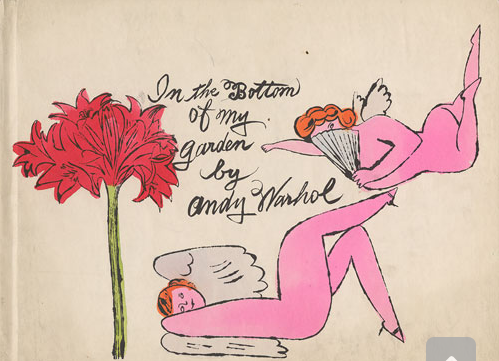 In the Bottom
of my
Garden
by
andy Warhol